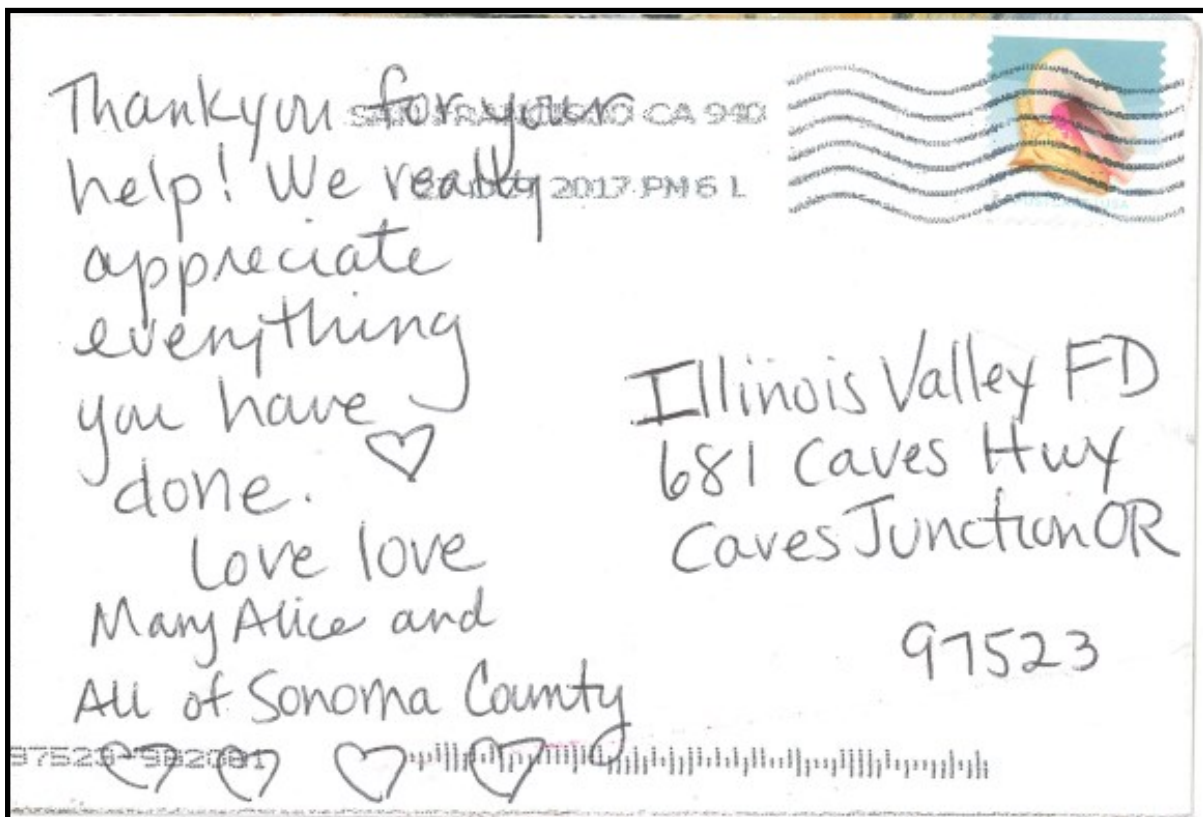 Thankyou for your
help! We really
appreciate
everything
you have
done.
Love love
Mary Alice and
All of Sonoma County
SAN FRANCISCO CA 940
2017 PM 6 L
USA
Illinois Valley FD
681 Caves Hwy
Caves Junction OR
97523